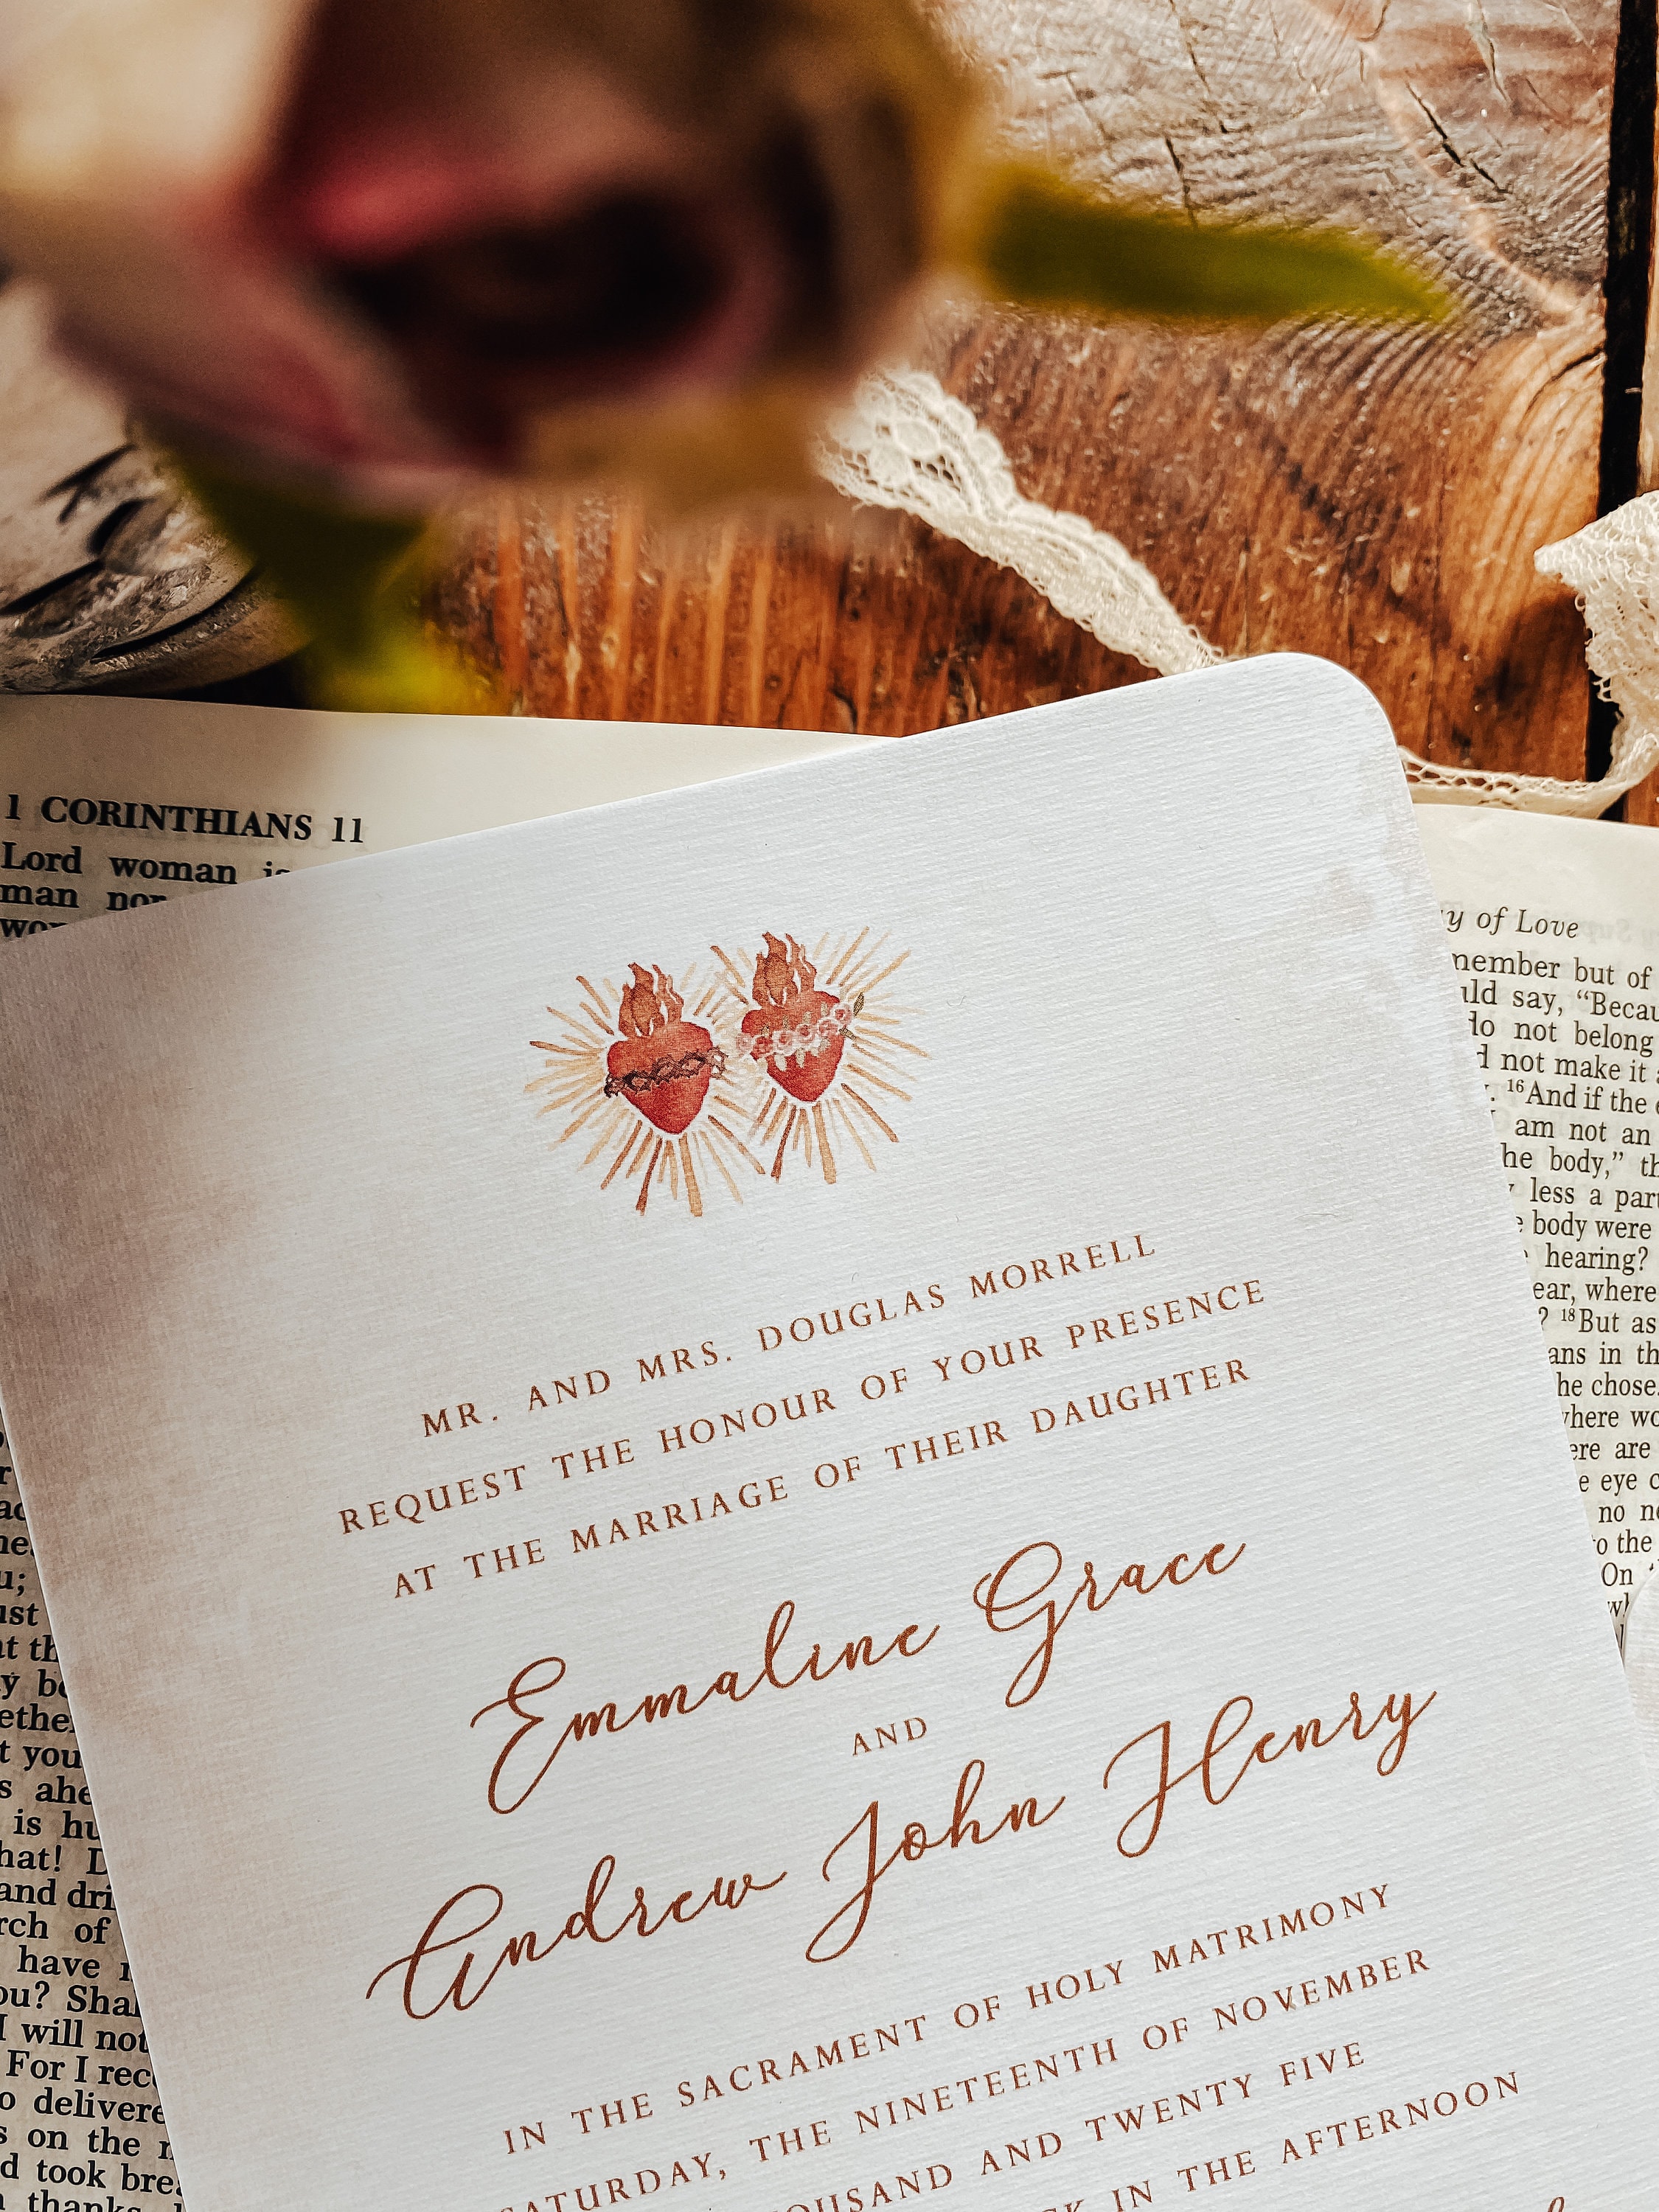 1 CORINTHIANS 11
Lord woman is
man nor
MR. AND MRS. DOUGLAS MORRELL
REQUEST THE HONOUR OF YOUR PRESENCE
AT THE MARRIAGE OF THEIR DAUGHTER
Emmaline Grace
AND
Andrew John Henry
IN THE SACRAMENT OF HOLY MATRIMONY
SATURDAY, THE NINETEENTH OF NOVEMBER
AND TWENTY FIVE
IN THE AFTERNOON
you
is
hat! D
and
of
have
ou? Shal
I will not
For I
o
s on the
d took
thanks
of Love
but of
say, “Becau
do not belong
not make it
16 And if the
am not an
body,”
less a part
body were
hearing?
ear, where
? 18 But as
in
he chose.
where
are
eye
no
to the
On